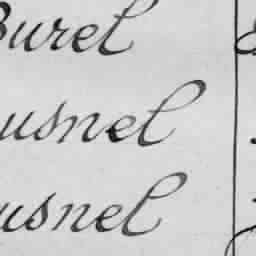 Burel
usnel
usnel